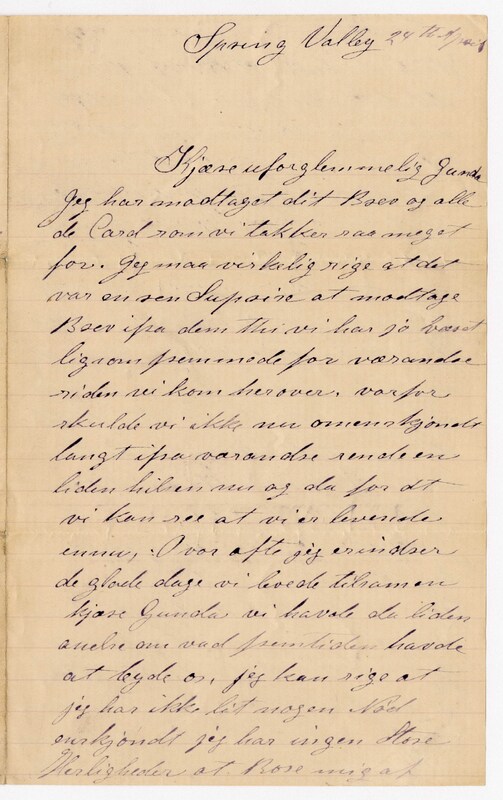 Spring Valley 24th
Kjære uforglemmelig Gunda
Jeg har modtaget dit Brev og alle
de Card som vi takker saa meget
for. Jeg maa virkelig sige at det
var en sen Suprise at modtage
Brev ifra dem thi vi har jo været
ligsom fremmede for værandre
siden vi kom herover. vorfor
skulde vi ikke nu omenskjøndt
langt ifra værandre sende en
liden hilsen nu og da for at
vi kan see at vi er levende
ennu, O vor ofte jeg erindrer
de glade dage vi levede tilsamen
kjære Gunda vi havde da liden
anelse om vad fremtiden havde
at byde os, jeg kan sige at
jeg har ikke lit nogen Nød
enskjøndt jeg har ingen Store
Herligheder at Rose mig af